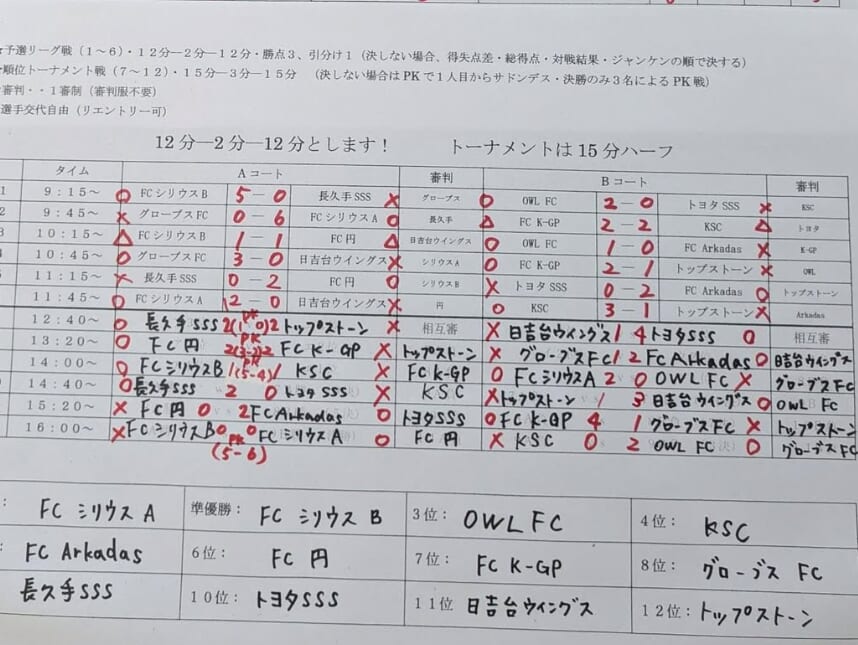 ★予選リーグ戦（１～６）・１２分―２分―１２分・勝点３、引分け１（決しない場合、得失点差・総得点・対戦結果・ジャンケンの順で決する）
★順位トーナメント戦（７～１２）・１５分―３分―１５分　（決しない場合はPKで１人目からサドンデス・決勝のみ３名によるPK戦）
審判・・１審制（審判服不要）
選手交代自由（リエントリー可）
12分―2分―12分とします！　トーナメントは15分ハーフ
タイム　Aコート　審判　Bコート　審判
1　9：15～　○　FCシリウスB　5－0　長久手SSS　×　グローブス　○　OWL FC　2－0　トヨタSSS　×　KSC
2　9：45～　×　グローブスFC　0－6　FCシリウスA　○　長久手　△　FC K-GP　2－2　KSC　△　トヨタ
3　10：15～　△　FCシリウスB　1－1　FC円　△　日吉台ウイングス　○　OWL FC　1－0　FC Arkadas　×　K-GP
10：45～　○　グローブスFC　3－0　日吉台ウイングス　×　シリウスA　○　FC K-GP　2－1　トップストーン　×　OWL
11：15～　×　長久手SSS　0－2　FC円　○　シリウスB　×　トヨタSSS　0－2　FC Arkadas　○　トップストーン
11：45～　○　FCシリウスA　2－0　日吉台ウイングス　×　円　○　KSC　3－1　トップストーン　×　Arkadas
12：40～　○　長久手SSS　2(1 PK 0)2　トップストーン　×　相互審　×　日吉台ウイングス　1　4　トヨタSSS　○　相互審
13：20～　○　FC円　2(3 PK 2)2　FC K-GP　×　トップストーン　×　グローブスFC　1　2　FC Arkadas　○　日吉台ウイングス
14：00～　○　FCシリウスB　1(5 PK 4)1　KSC　×　FC K-GP　○　FCシリウスA　2　0　OWL FC　×　グローブスFC
14：40～　○　長久手SSS　2　0　トヨタSSS　×　KSC　×　トップストーン　1　3　日吉台ウイングス　○　OWL FC
15：20～　×　FC円　0　2　FC Arkadas　○　トヨタSSS　○　FC K-GP　4　1　グローブスFC　×　トップストーン
16：00～　×　FCシリウスB　0　PK　0　FCシリウスA　○　FC円　×　KSC　0　2　OWL FC　○　グローブスFC
(5-6)
：　FC シリウス A　準優勝：　FC シリウス B　3位：　OWL FC　4位：　KSC
：　FC Arkadas　6位：　FC 円　7位：　FC K-GP　8位：　グローブス FC
長久手SSS　10位：　トヨタSSS　11位　日吉台ウイングス　12位：　トップストーン